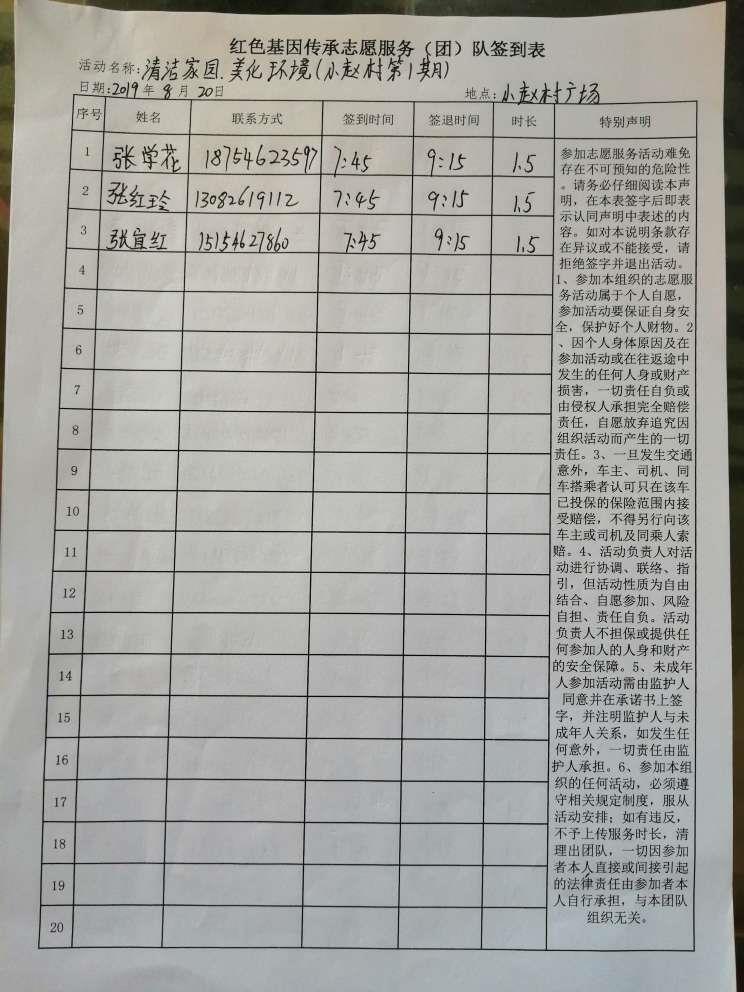 红色基因传承志愿服务（团）队签到表
活动名称：清洁家园.美化环境(小赵村第1期)
日期：2019年 8月 20日 地点：小赵村广场
序号 姓名 联系方式 签到时间 签退时间 时长 特别声明
1 张学花 18754623597 7:45 9:15 1.5
2 张红玲 13082619112 7:45 9:15 1.5
3 张宜红 15154627860 7:45 9:15 1.5
4
5
6
7
8
9
10
11
12
13
14
15
16
17
18
19
20
参加志愿服务活动难免
存在不可预知的危险性
。请务必仔细阅读本声
明，在本表签字后即表
示认同声明中表述的内
容。如对本说明条款存
在异议或不能接受，请
拒绝签字并退出活动。
1、参加本组织的志愿服
务活动属于个人自愿，
参加活动要保证自身安
全，保护好个人财物。2
、因个人身体原因及在
参加活动或在往返途中
发生的任何人身或财产
损害，一切责任自负或
由侵权人承担完全赔偿
责任，自愿放弃追究因
组织活动而产生的一切
责任。3、一旦发生交通
意外，车主、司机、同
车搭乘者认可只在该车
已投保的保险范围内接
受赔偿，不得另行向该
车主或司机及同乘人索
赔。4、活动负责人对活
动进行协调、联络、指
引，但活动性质为自由
结合、自愿参加、风险
自担、责任自负。活动
负责人不担保或提供任
何参加人的人身和财产
的安全保障。5、未成年
人参加活动需由监护人
同意并在承诺书上签
字，并注明监护人与未
成年人关系，如发生任
何意外，一切责任由监
护人承担。6、参加本组
织的任何活动，必须遵
守相关规定制度，服从
活动安排；如有违反，
不予上传服务时长，清
理出团队，一切因参加
者本人直接或间接引起
的法律责任由参加者本
人自行承担，与本团队
组织无关。